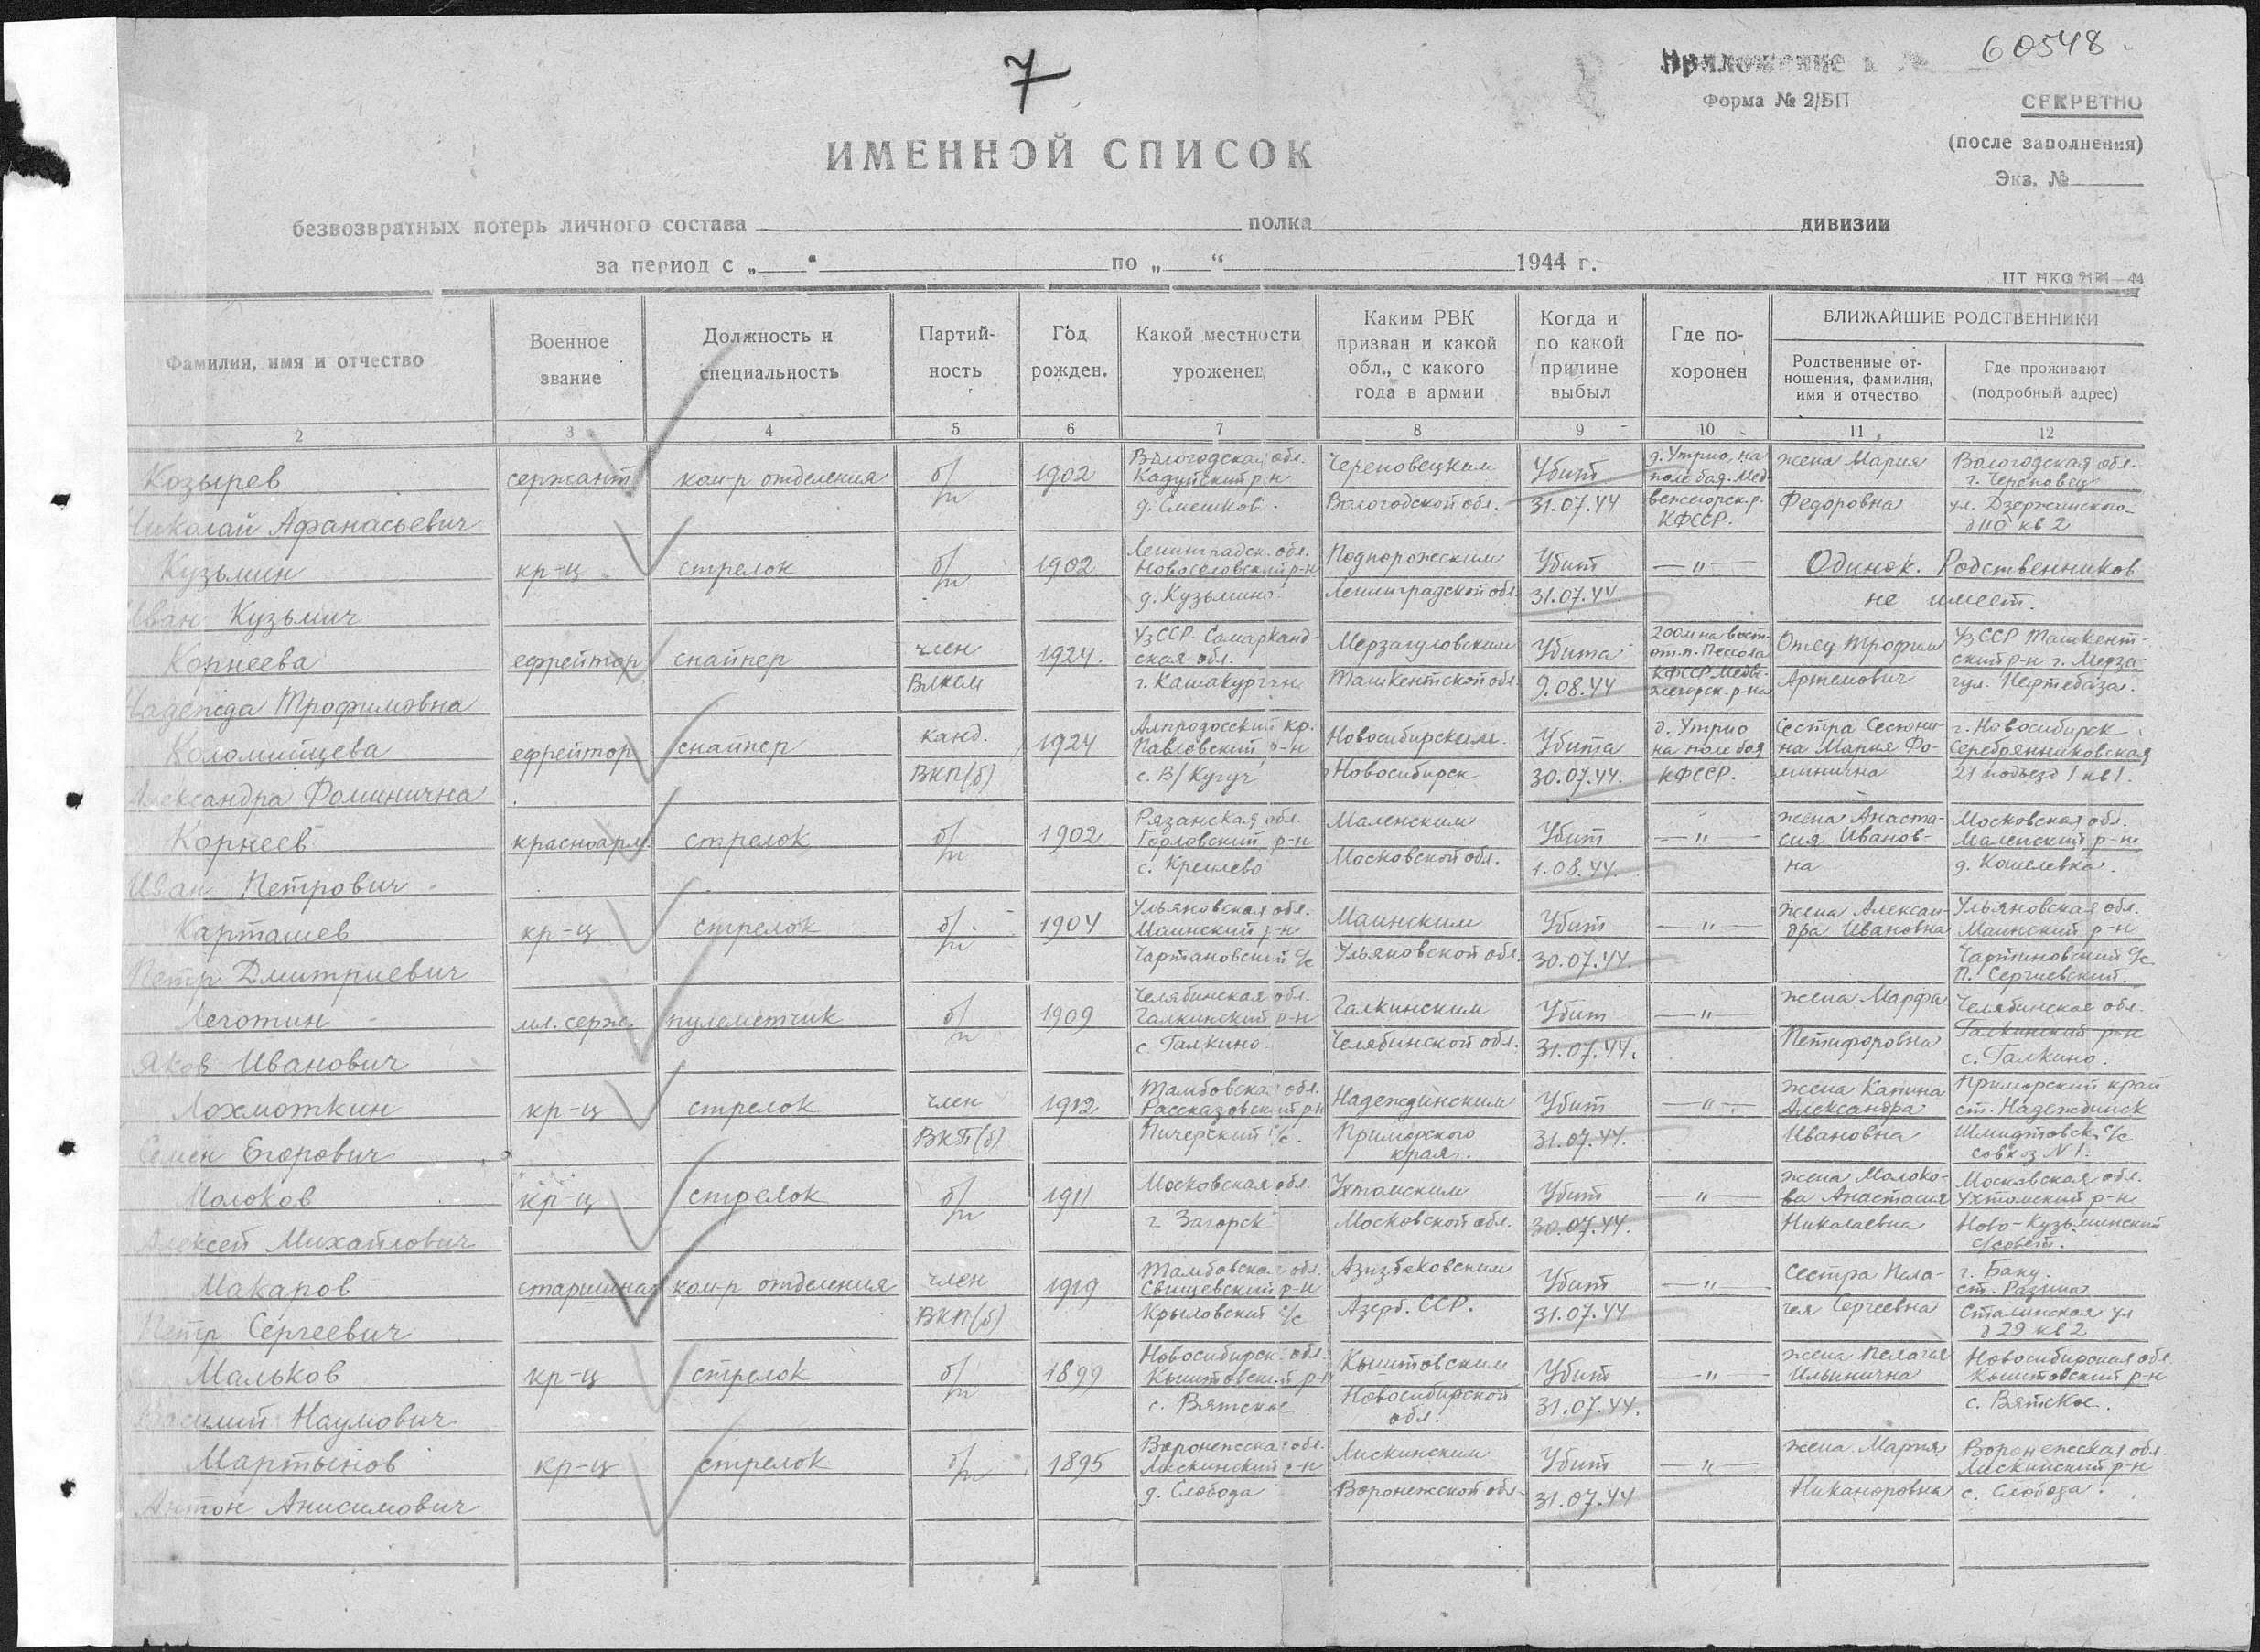 7
Приложение к №
60548
Форма № 2/БП
СЕКРЕТНО
(после заполнения)
Экз. №
ИМЕННОЙ СПИСОК
безвозвратных потерь личного состава полка дивизии
за период с „ “ по „ “ 1944 г.
Фамилия, имя и отчество
Военное звание
Должность и специальность
Партий-ность
Год рожден.
Какой местности уроженец
Каким РВК призван и какой обл., с какого года в армии
Когда и по какой причине выбыл
Где по-хоронен
БЛИЖАЙШИЕ РОДСТВЕННИКИ
Родственные от-ношения, фамилия, имя и отчество
Где проживают (подробный адрес)
2 3 4 5 6 7 8 9 10 11 12
Козырев сержант ком-р отделения б/п 1902 Вологодская обл. Кадуйский р-н Череповецким Убит д. Утрио, на поле боя. Мед- жена Мария Вологодская обл. г. Череповец
Николай Афанасьевич Вологодской обл. 31.07.44 вежегорск. р. КФССР. Федоровна ул. Дзержинского д 110 кв 2
Кузьмин кр-ц стрелок б/п 1902 Ленинградск. обл. Новоселовский р-н Подпорожским Убит —"— Одинок. Родственников
Иван Кузьмич д. Кузьмино Ленинградской обл. 31.07.44 не имеет.
Корнеева ефрейтор снайпер член 1924. УзССР Самарканд-ская обл. Мерзагуловским Убита 200м на вост. Отец Трофим УзССР Ташкент-ский р-н г. Мерза-
Надежда Трофимовна Влксм г. Ташкентской обл. 9.08.44 КФССР Медве-жегорск. р-на Артемович гул. Нефтебаза.
Коломийцева ефрейтор снайпер канд. 1924 Павловский р-н Новосибирским Убита д. Утрио на поле боя Сестра на Мария Фо- г. Новосибирск Серебрянниковская
Александра Фоминична ВКП(б) Новосибирск 30.07.44. КФССР. минична 21 подъезд 1 кв 1.
Корнеев красноарм. стрелок б/п 1902 Рязанская обл. Горловский р-н Маленским Убит —"— жена Анаста-сия Иванов- Московская обл. Маленский р-н
Иван Петрович с. Кремлево Московской обл. 1.08.44. на д. Кошелевка.
Карташев кр-ц стрелок б/п 1904 Ульяновская обл. Маинский р-н Маинским Убит —"— жена Алексан-дра Ивановна Ульяновская обл. Маинский р-н
Петр Дмитриевич с/с Ульяновской обл. 30.07.44. с/с П. Сергиевский.
Леготин мл. серж. пулеметчик б/п 1909 Челябинская обл. Галкинский р-н Галкинским Убит —"— жена Марфа Челябинская обл. Галкинский р-н
Яков Иванович с. Галкино Челябинской обл. 31.07.44. с. Галкино.
Лохмоткин кр-ц стрелок член 1912 Тамбовская обл. Рассказовский р-н Надеждинским Убит —"— жена Александра Приморский край ст. Надеждинск
Семен Егорович ВКП(б) Пичерский с/с. Приморского края. 31.07.44. Ивановна с/с совхоз N 1.
Молоков кр-ц стрелок б/п 1911 Московская обл. Ухтомским Убит —"— жена Молоко-ва Анастасия Московская обл. Ухтомский р-н
Алексей Михайлович г. Загорск Московской обл. 30.07.44. Николаевна Ново-Кузьминский с/совет.
Макаров старшина ком-р отделения член 1919 Тамбовская обл. р-н Азизбековским Убит —"— Сестра Пела- г. Баку. ст. Разина
Петр Сергеевич ВКП(б) Крыловский с/с Азерб. ССР. 31.07.44 гея Сергеевна Сталинская ул д 29 кв 2
Мальков кр-ц стрелок б/п 1899 Новосибирск. обл. Кыштовский р-н Кыштовским Убит —"— жена Пелагея Ильинична Новосибирская обл Кыштовский р-н
Василий Наумович с. Вятское Новосибирской обл. 31.07.44. с. Вятское.
Мартынов кр-ц стрелок б/п 1895 Воронежская обл. Лискинский р-н Лискинским Убит —"— жена Мария Воронежская обл. Лискинский р-н
Антон Анисимович д. Слобода Воронежской обл. 31.07.44 Никаноровна с. Слобода.